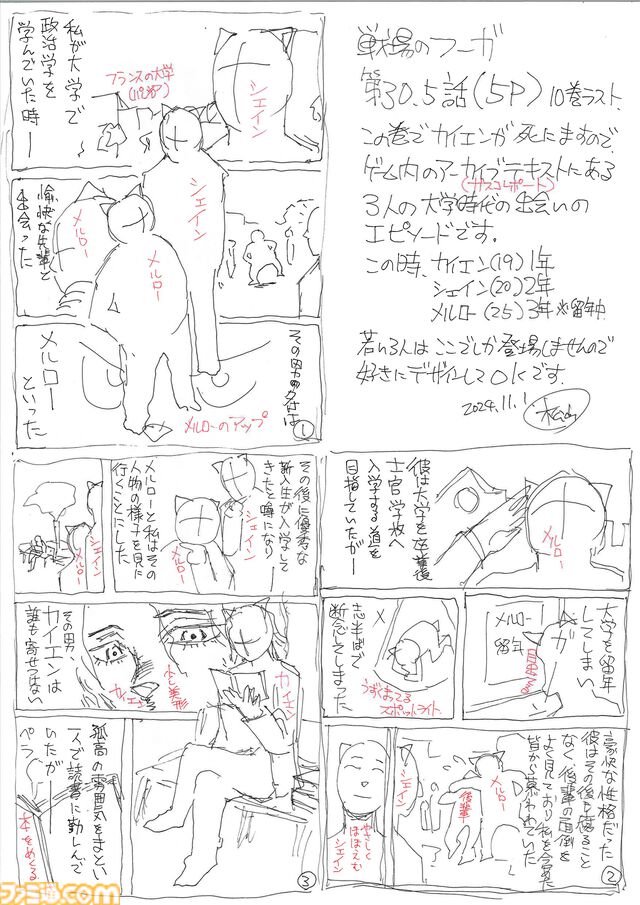 戦場のフーガ
第30.5話(5P) 10巻ラスト.
この巻でカイエンが死にますので、
ゲーム内のアーカイブテキストにある
(ガスコレポート)
3人の大学時代の出会いの
エピソードです。
この時、カイエン(19)1年
シェイン(20)2年
メルロー(25)3年※留年中
若い3人はここでしか登場しませんので
好きにデザインしてOKです.
2024.11.1
私が大学で
政治学を
学んでいた時ー
フランスの大学
シェイン
シェイン
愉快な先輩と
出会った
メルロー
メルロー
その男の名は
メルロー
といった
メルローのアップ
①
彼は大学を卒業後
士官学校へ
入学する道を
目指していたがー
メルロー
大学を留年
してしまい、
メルロー
留年
ガ
志半ばで
断念してしまった
うずくまってる
スポットライト
豪快な性格だった
彼はその後も腐ること
なく後輩の面倒を
よく見ており私を含めた
皆から慕われていた
メルロー
後輩
シェイン
やさしく
ほほえむ
シェイン
②
その後に優秀な
新入生が入学して
きたと噂になりー
シェイン
メルロー
メルローと私はその
人物の様子を見に
行くことにした
シェイン
メルロー
その男、
カイエンは
誰も寄せつけない
カイエン
少し美形
カイエン
孤高の雰囲気をまとい
一人で読書に勤しんで
いたがー
ペラ
本をめくる
③
ファミ通.com